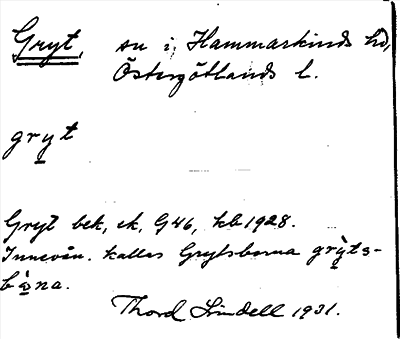 Gryt, sn i Hammarkinds hd,
Östergötlands l.
gryt
Gryt bek, ek, G46, kb 1928.
Innevån. kallas Grytsborna grỳts-
bòna.
Thord Lindell 1931.